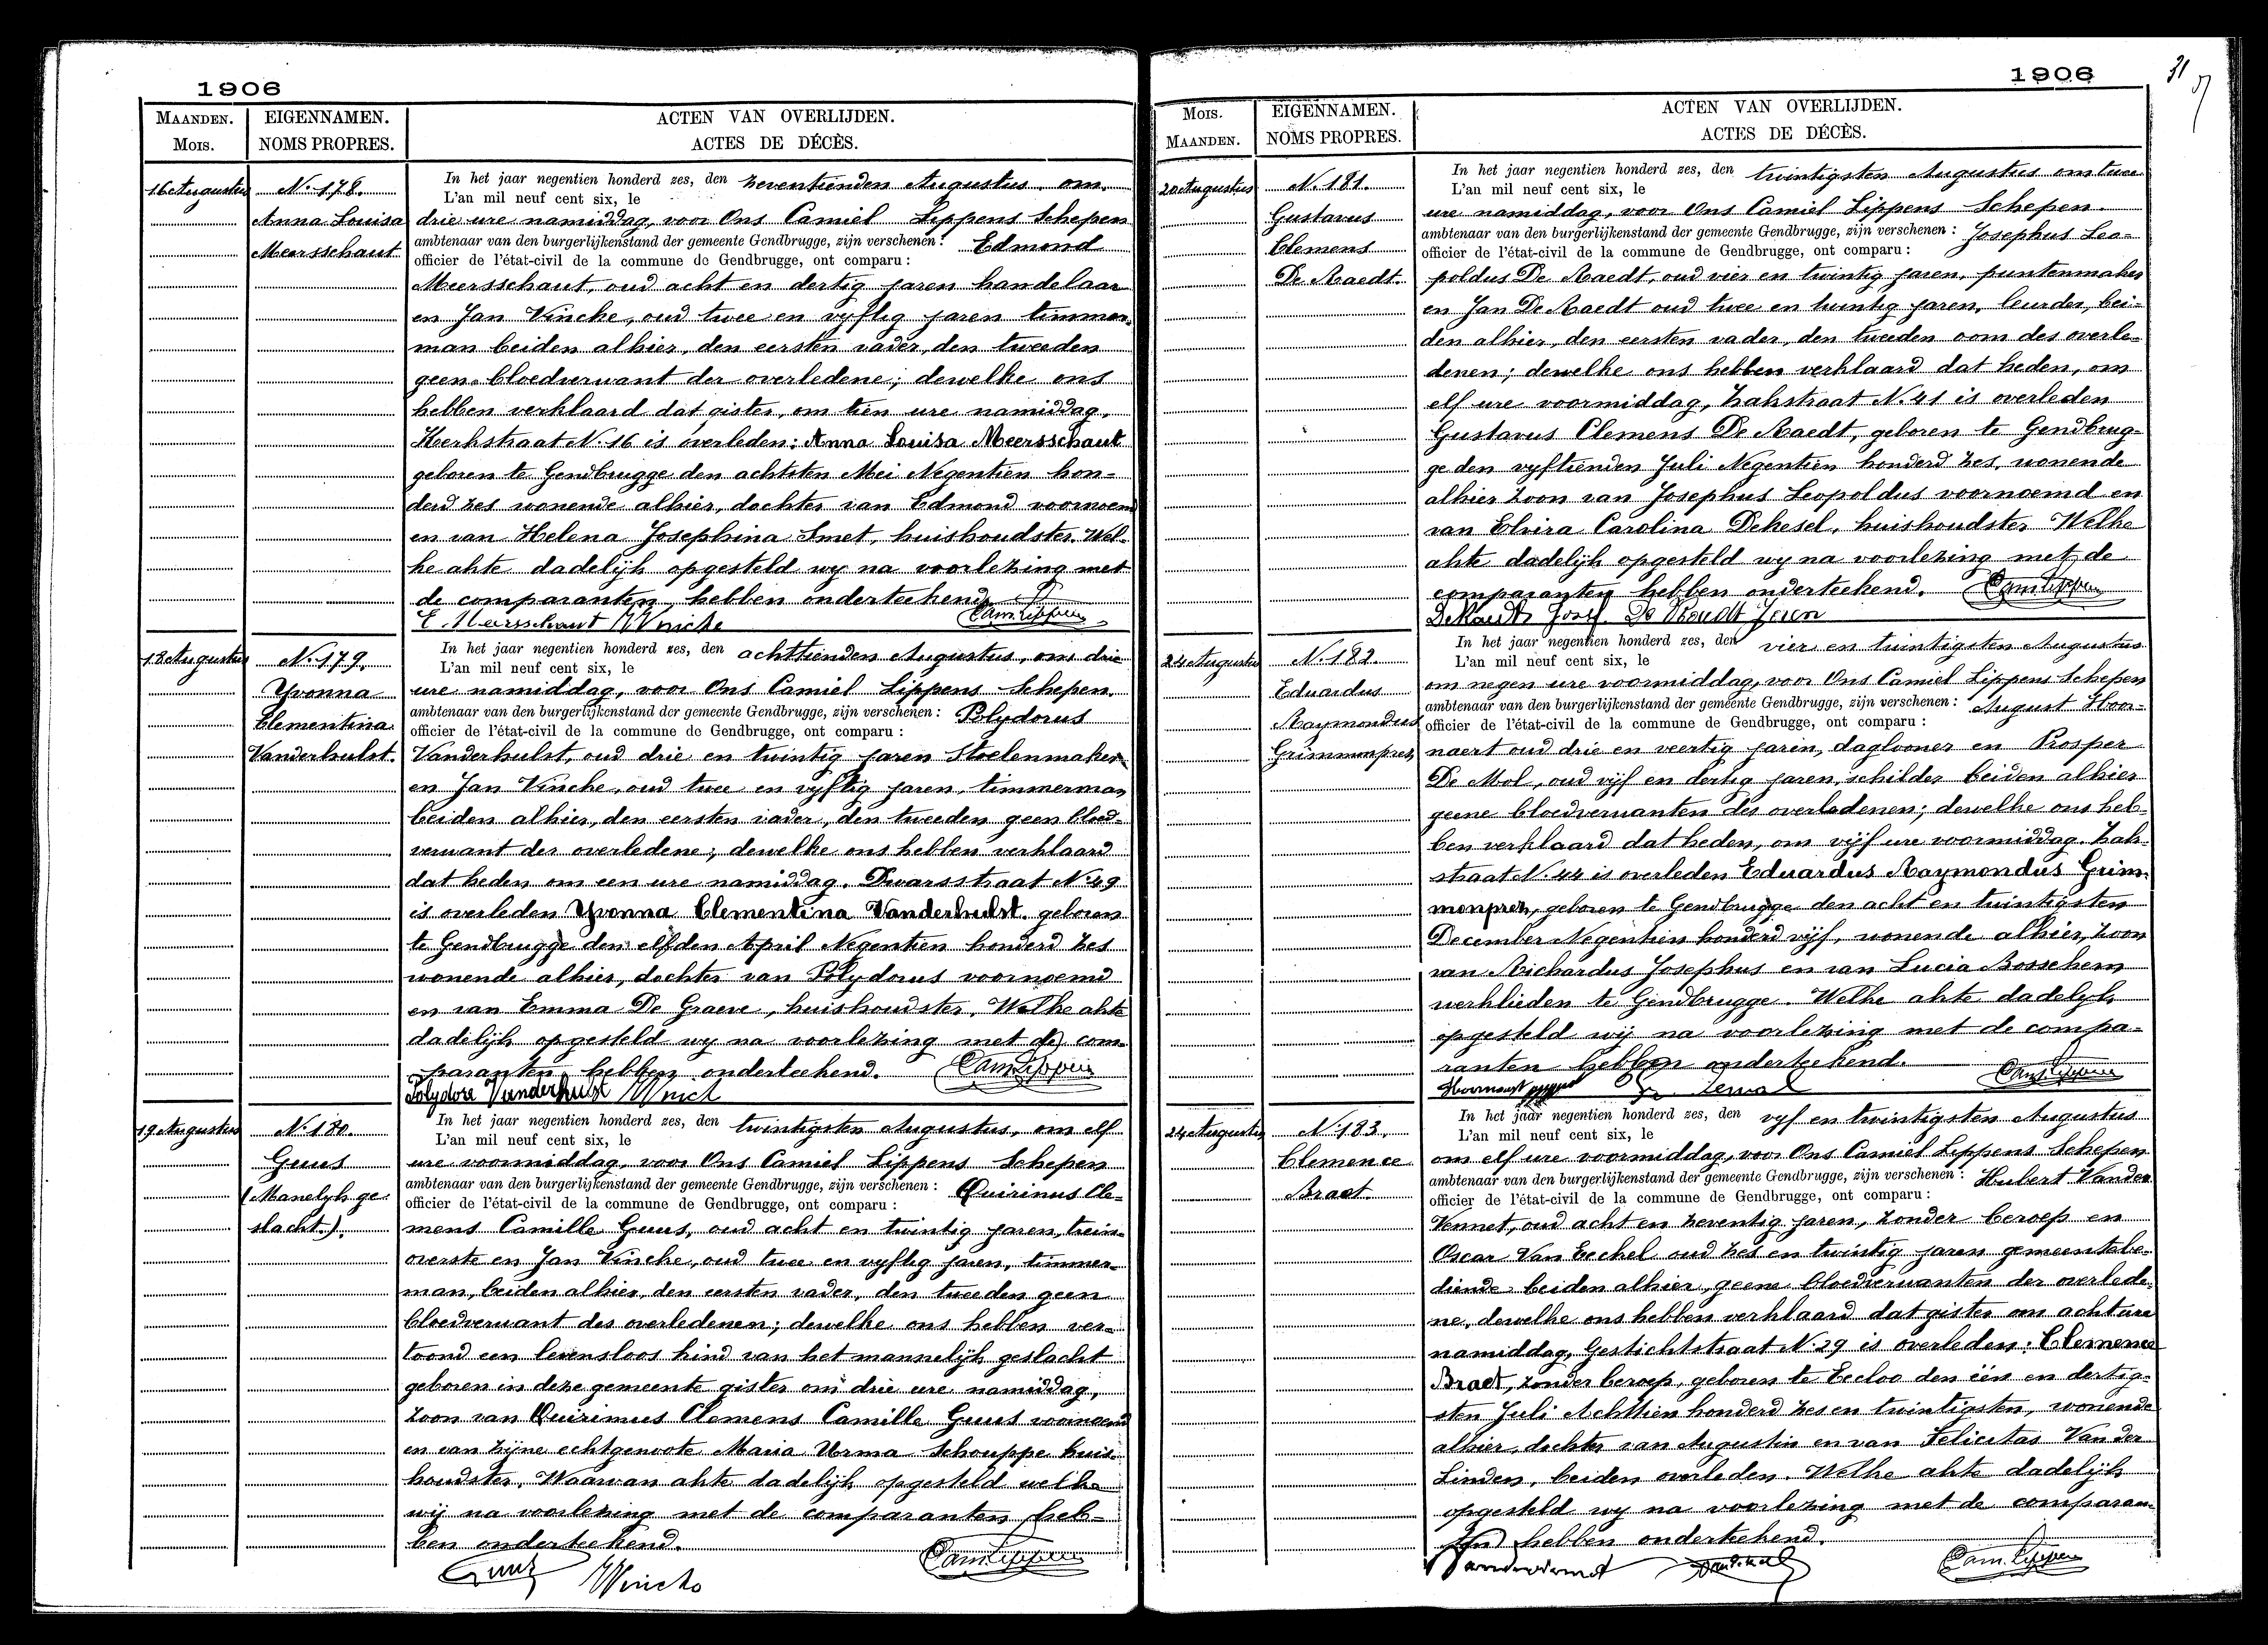 1906
MAANDEN.
MOIS.
EIGENNAMEN.
NOMS PROPRES.
ACTEN VAN OVERLIJDEN.
ACTES DE DÉCÈS.
16 Augustus
N. 178.
Anna Louisa
Meersschaut
In het jaar negentien honderd zes, den zeventienden Augustus om
L'an mil neuf cent six, le
drie ure namiddag, voor Ons Camiel Lippens Schepen
ambtenaar van den burgerlijkenstand der gemeente Gendbrugge, zijn verschenen: Edmond
officier de l'état-civil de la commune de Gendbrugge, ont comparu:
Meersschaut, oud acht en dertig jaren handelaar
en Jan Vincke, oud twee en vyftig jaren timmer-
man beiden alhier, den eersten vader, den tweeden
geen bloedverwant der overledene; dewelke ons
hebben verklaard dat gister, om tien ure namiddag,
Kerkstraat N. 16 is overleden: Anna Louisa Meersschaut
geboren te Gendbrugge den achtsten Mei Negentien hon-
derd zes wonende alhier, dochter van Edmond voornoemd
en van Helena Josephina Smet, huishoudster. Wel-
ke akte dadelijk opgesteld wy na voorlezing met
de comparanten, hebben onderteekend.
E. Meersschaut J Vincke Cam Lippens
18 Augustus
N. 179.
Yvonna
Clementina
Vanderhulst.
In het jaar negentien honderd zes, den achttienden Augustus, om drie
L'an mil neuf cent six, le
ure namiddag, voor Ons Camiel Lippens Schepen.
ambtenaar van den burgerlijkenstand der gemeente Gendbrugge, zijn verschenen: Polydorus
officier de l'état-civil de la commune de Gendbrugge, ont comparu:
Vanderhulst, oud drie en twintig jaren Stoelenmaker
en Jan Vincke, oud twee en vyftig jaren, timmerman
beiden alhier, den eersten vader, den tweeden geen bloed-
verwant der overledene; dewelke ons hebben verklaard
dat heden om een ure namiddag. Dwarsstraat N. 49
is overleden Yvonna Clementina Vanderhulst. geboren
te Gendbrugge den elfden April Negentien honderd zes
wonende alhier, dochter van Polydorus voornoemd
en van Emma De Graeve, huishoudster. Welke akte
dadelijk opgesteld wy na voorlezing met de com-
paranten hebben onderteekend. Cam Lippens
Polydore Vanderhulst J Vinck
19 Augustus
N. 180.
Guus
(Manelyk ge-
slacht.).
In het jaar negentien honderd zes, den twintigsten Augustus, om elf
L'an mil neuf cent six, le
ure voormiddag, voor Ons Camiel Lippens Schepen
ambtenaar van den burgerlijkenstand der gemeente Gendbrugge, zijn verschenen: Quirinus Cle-
officier de l'état-civil de la commune de Gendbrugge, ont comparu:
mens Camille Guus, oud acht en twintig jaren, trein-
overste en Jan Vincke, oud twee en vyftig jaren, timmer-
man, beiden alhier, den eersten vader, den tweeden geen
bloedverwant des overledenen; dewelke ons hebben ver-
toond een levensloos kind van het mannelijk geslacht
geboren in deze gemeente gister om drie ure namiddag,
zoon van Quirimus Clemens Camille Guus voornoemd
en van zijne echtgenoote Maria Urma Schouppe huis-
houdster. Waarvan akte dadelijk opgesteld welke
wij na voorlezing met de comparanten heb-
ben onderteekend.
Guus J Vincke Cam Lippens
1906
31
MOIS.
MAANDEN.
EIGENNAMEN.
NOMS PROPRES.
ACTEN VAN OVERLIJDEN.
ACTES DE DÉCÈS.
20 Augustus
N. 181.
Gustavus
Clemens
De Raedt.
In het jaar negentien honderd zes, den twintigsten Augustus om twee
L'an mil neuf cent six, le
ure namiddag, voor Ons Camiel Lippens Schepen.
ambtenaar van den burgerlijkenstand der gemeente Gendbrugge, zijn verschenen: Josephus Leo-
officier de l'état-civil de la commune de Gendbrugge, ont comparu:
poldus De Raedt, oud vier en twintig jaren, puntenmaker
en Jan De Raedt oud twee en twintig jaren, leurder, bei-
den alhier, den eersten vader, den tweeden oom des overle-
denen; dewelke ons hebben verklaard dat heden, om
elf ure voormiddag, Zakstraat N. 41 is overleden
Gustavus Clemens De Raedt, geboren te Gendbrug-
ge den vyftienden Juli Negentien honderd zes, wonende
alhier zoon van Josephus Leopoldus voornoemd en
van Elvira Carolina Dekesel, huishoudster Welke
akte dadelyk opgesteld wy na voorlezing met de
comparanten hebben onderteekend. Cam Lippens
De Raedt Josef. De Raedt Jean
24 Augustus
N. 182.
Eduardus
Raymondus
Grimmonprez
In het jaar negentien honderd zes, den vier en twintigsten Augustus
L'an mil neuf cent six, le
om negen ure voormiddag, voor Ons Camiel Lippens Schepen
ambtenaar van den burgerlijkenstand der gemeente Gendbrugge, zijn verschenen: August Hoor-
officier de l'état-civil de la commune de Gendbrugge, ont comparu:
naert oud drie en veertig jaren, daglooner en Prosper
De Mol, oud vijf en dertig jaren, schilder beiden alhier
geene bloedverwanten des overledenen; dewelke ons heb-
ben verklaard dat heden, om vijf ure voormiddag. Zak-
straat N. 44 is overleden Eduardus Raymondus Grim-
monprez, geboren te Gendbrugge den acht en twintigsten
December Negentien honderd vijf, wonende alhier, zoon
van Richardus Josephus en van Lucia Bosschem
werklieden te Gendbrugge. Welke akte dadelyk
opgesteld wij na voorlezing met de compa-
ranten hebben onderteekend.
Cam Lippens
24 Augustus
N. 183.
Clemence
Braet.
In het jaar negentien honderd zes, den vyf en twintigsten Augustus
L'an mil neuf cent six, le
om elf ure voormiddag, voor Ons Camiel Lippens Schepen
ambtenaar van den burgerlijkenstand der gemeente Gendbrugge, zijn verschenen: Hubert Vander
officier de l'état-civil de la commune de Gendbrugge, ont comparu:
Vennet, oud acht en zeventig jaren, zonder beroep en
Oscar Van Eeckel oud zes en twintig jaren gemeentebe-
diende beiden alhier, geene bloedverwanten der overlede-
ne, dewelke ons hebben verklaard dat gister om acht ure
namiddag, Gestichtstraat N. 29 is overleden: Clemence
Braet, zonder beroep, geboren te Eecloo den één en dertig-
sten Juli Achttien honderd zes en twintigsten, wonende
alhier, dochter van Augustin en van Felicitas Van der
Linden, beiden overleden. Welke akte dadelijk
opgesteld wy na voorlezing met de comparan-
ten hebben onderteekend.
Cam. Lippens